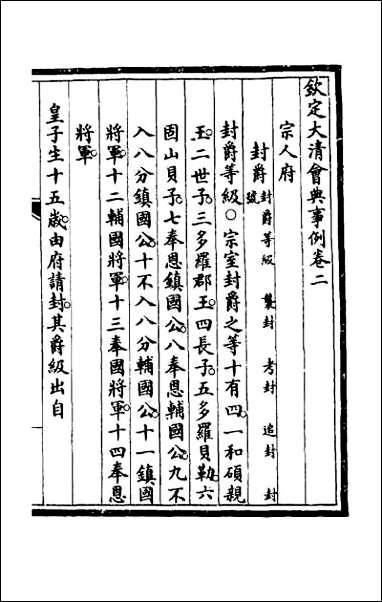 欽定大清會典事例卷二
宗人府
封爵 封爵等級 襲封 考封 追封 封號
封爵等級○宗室封爵之等十有四。一和碩親
王。二世子。三多羅郡王。四長子。五多羅貝勒。六
固山貝子。七奉恩鎮國公。八奉恩輔國公。九不
入八分鎮國公。十不入八分輔國公。十一鎮國
將軍。十二輔國將軍。十三奉國將軍。十四奉恩
將軍。
皇子生十五歲。由府請封。其爵級出自